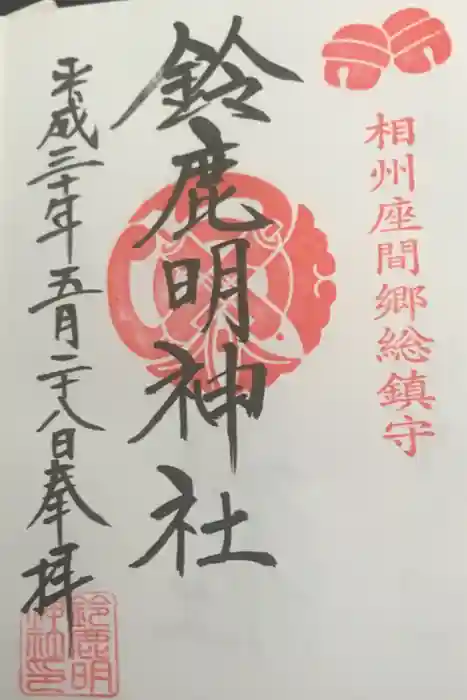 相州座間郷総鎮守
鈴鹿明神社
平成三十年五月二十八日奉拝
鈴鹿明
神社印